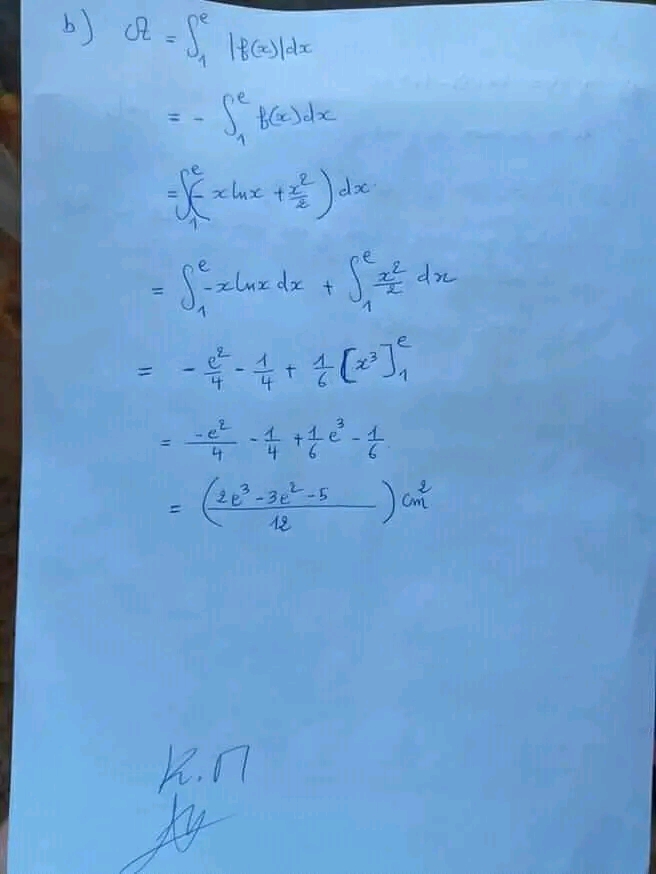 b) 𝒜 = ∫₁ᵉ |f(x)|dx
= - ∫₁ᵉ f(x)dx
= ∫₁ᵉ (- x lnx + x²/2) dx
= ∫₁ᵉ -x lnx dx + ∫₁ᵉ x²/2 dx
= - e²/4 - 1/4 + 1/6 [x³]₁ᵉ
= -e²/4 - 1/4 + 1/6 e³ - 1/6
= (2e³ - 3e² - 5 / 12) cm²
K.Π